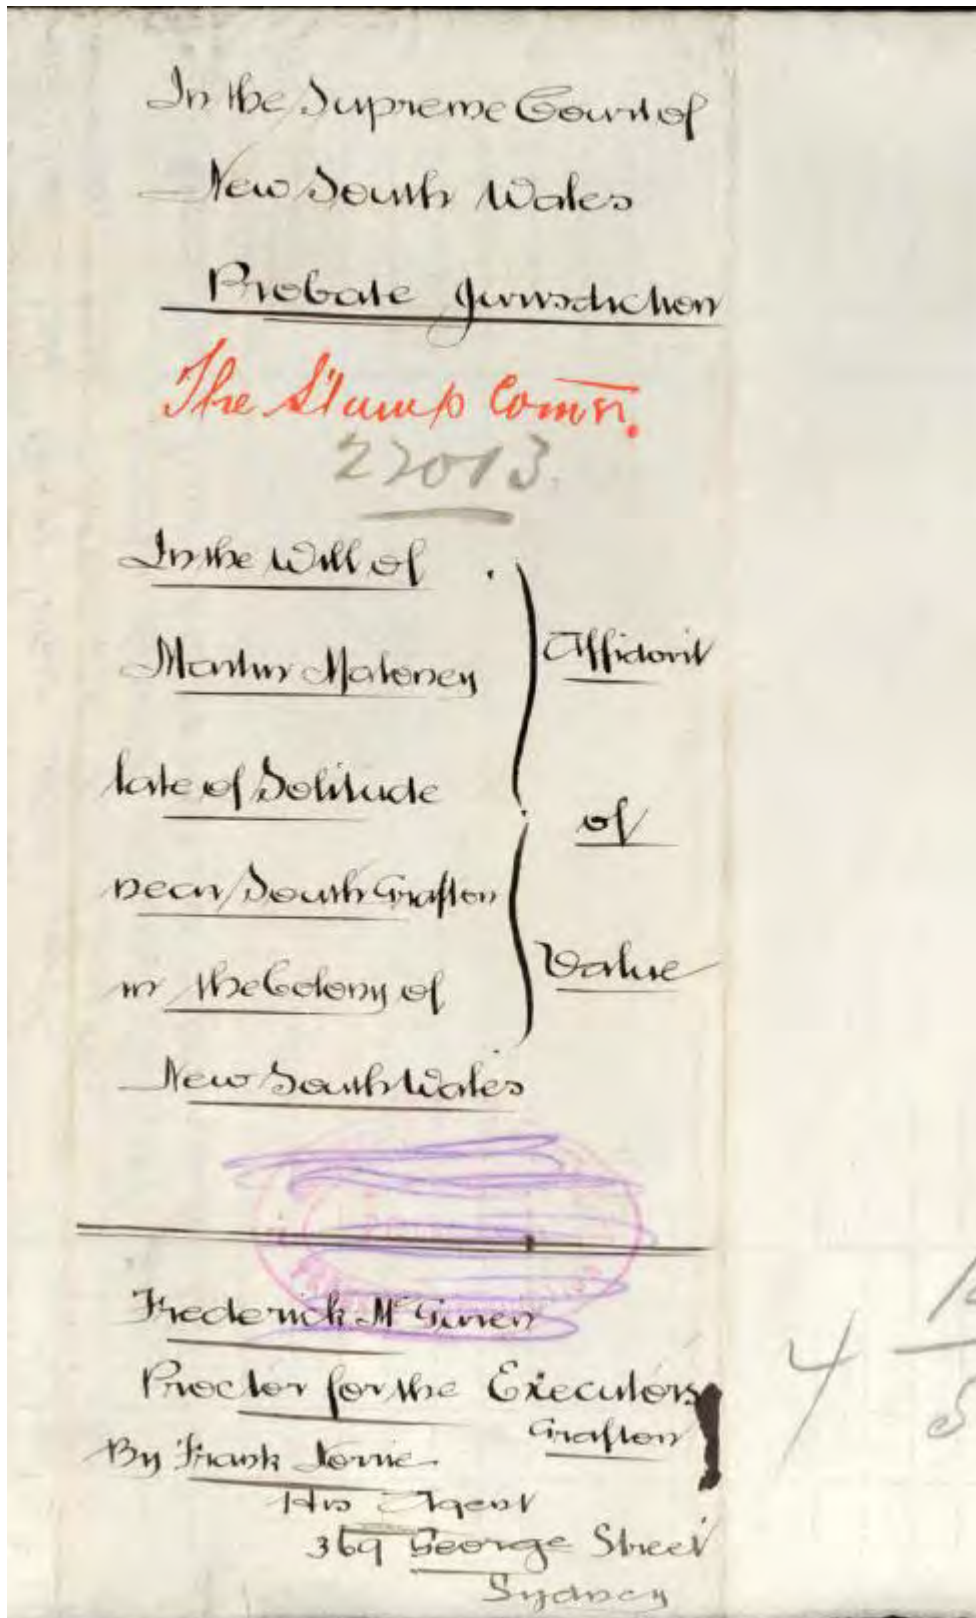 In the Supreme Court of
New South Wales
Probate Jurisdiction
The Stamp Comrs.
22013.
In the Will of
Martin Maloney
late of Solitude
near South Grafton
in the Colony of
New South Wales
Affidavit
of
Value
Frederick McGuren
Proctor for the Executors
Grafton
By Frank Norrie
His Agent
369 George Street
Sydney
4